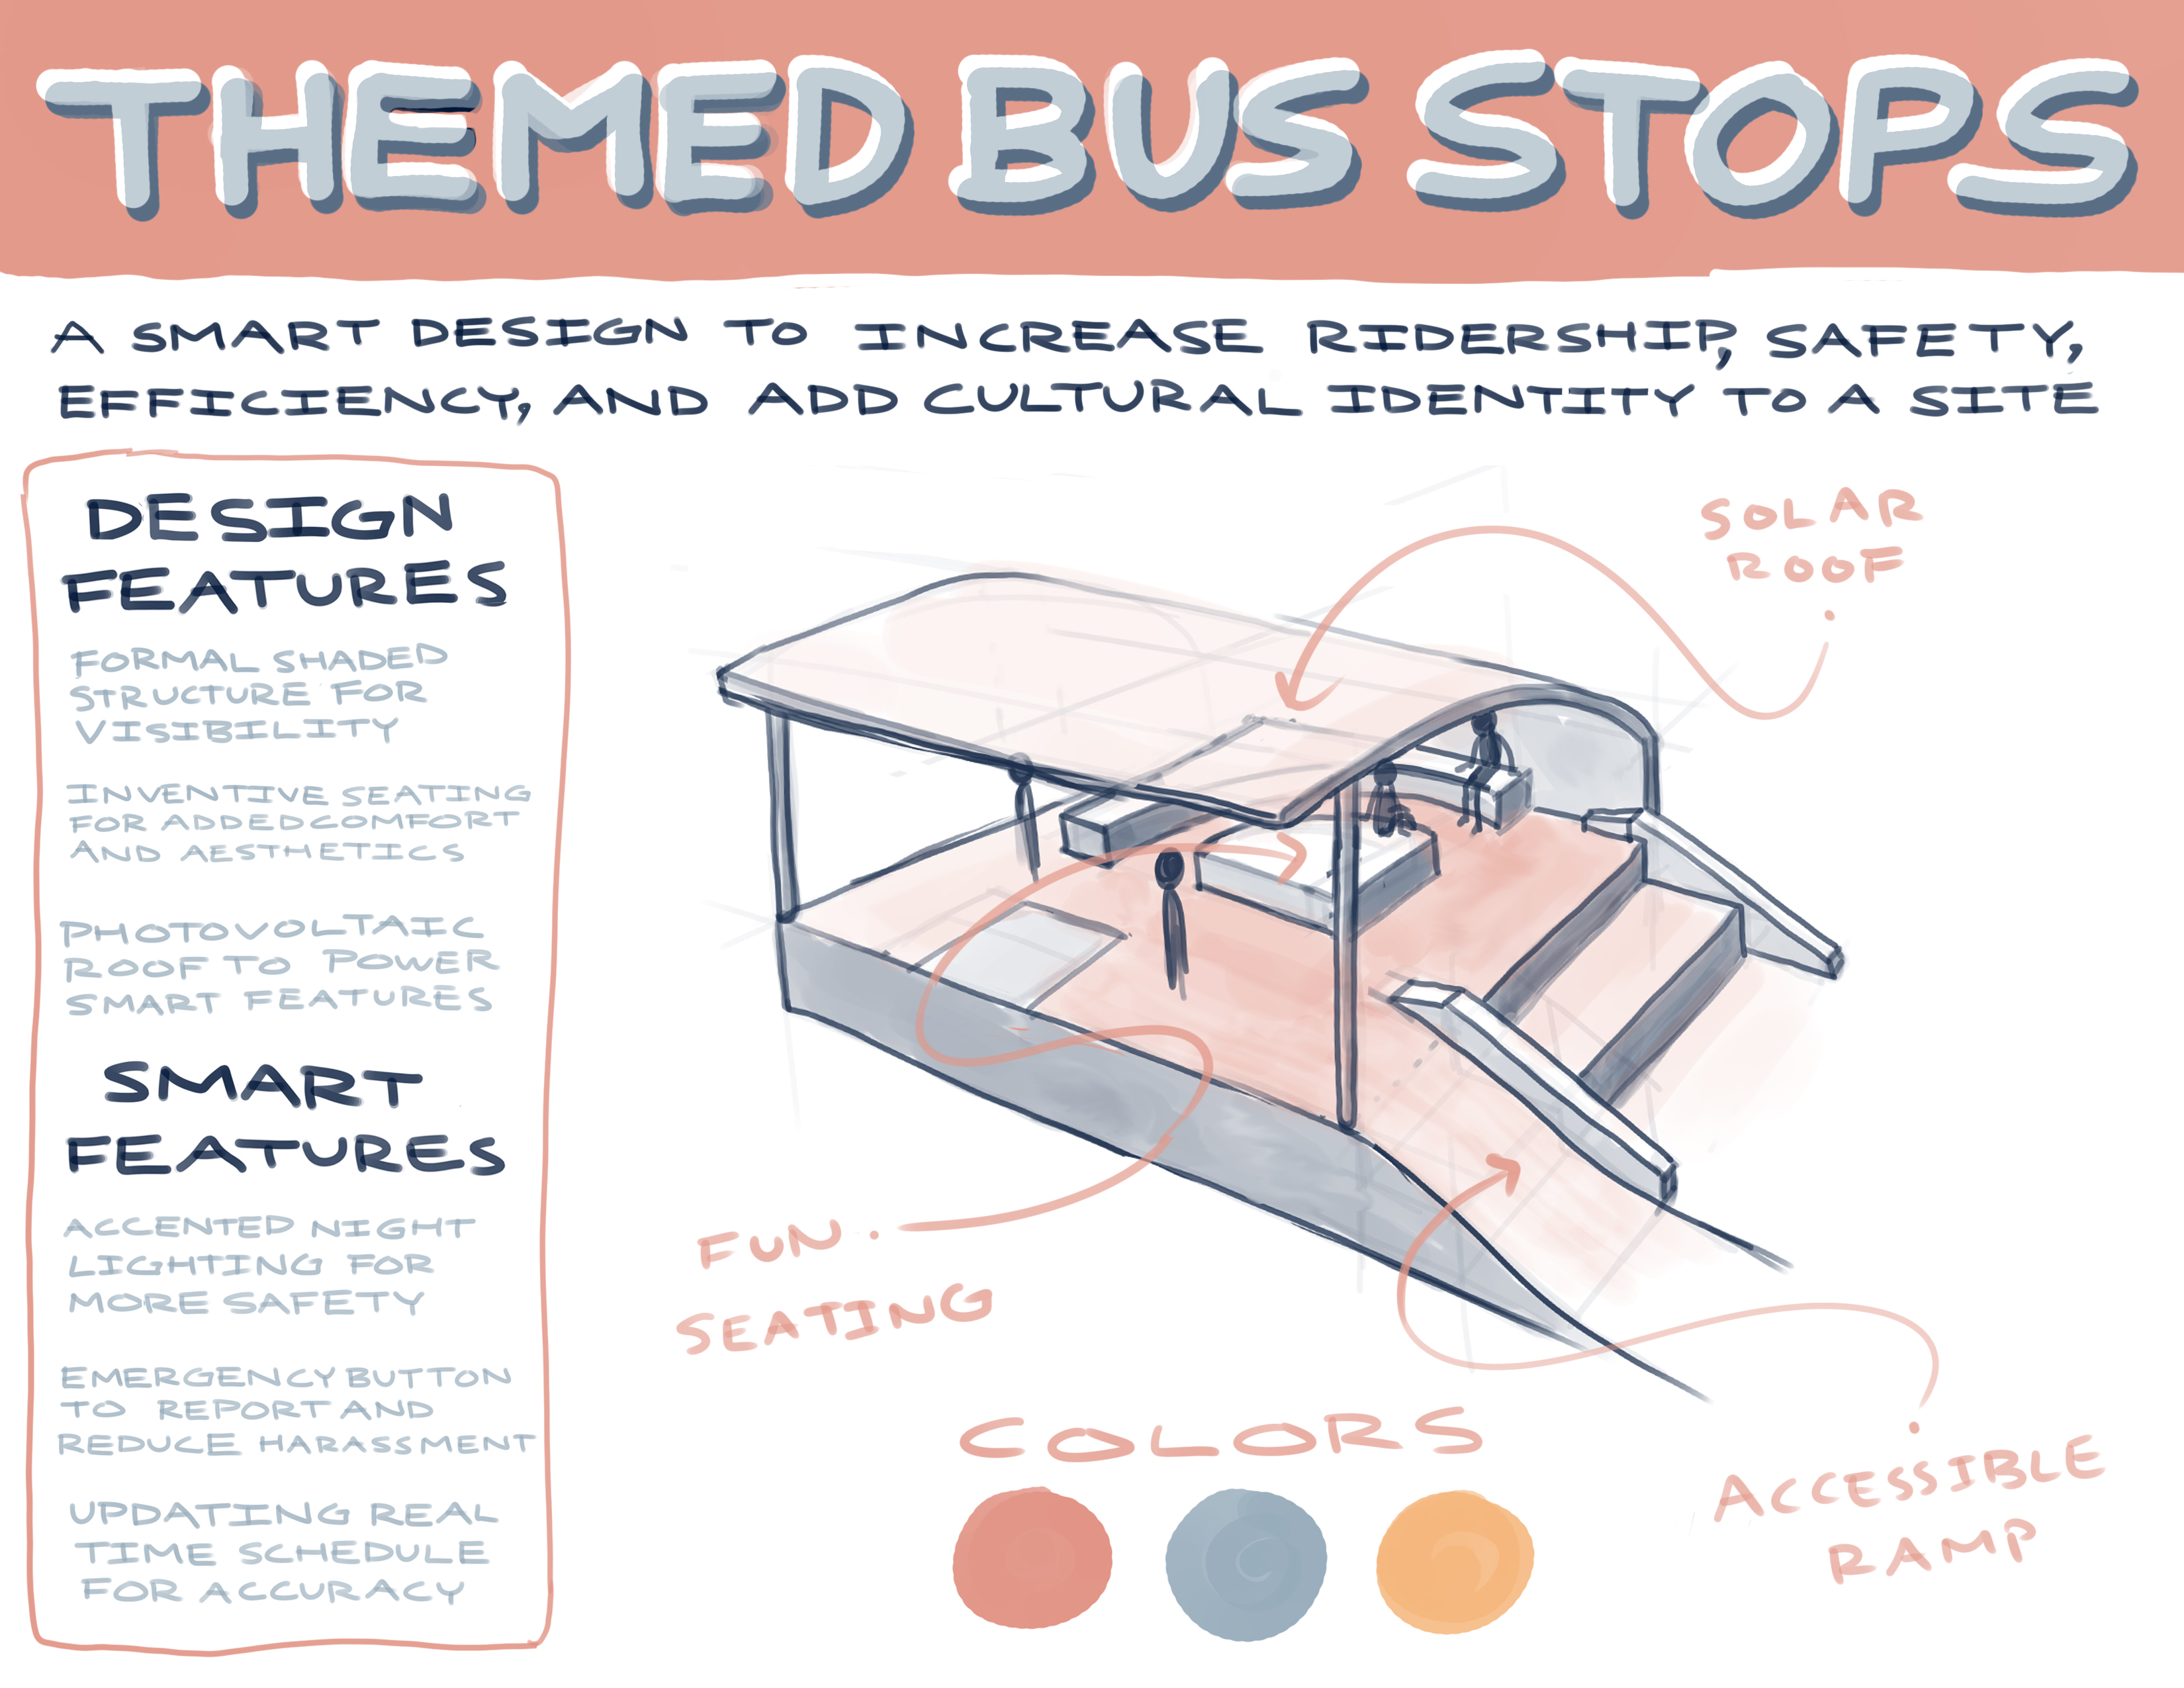 THEMED BUS STOPS
A SMART DESIGN TO INCREASE RIDERSHIP, SAFETY,
EFFICIENCY, AND ADD CULTURAL IDENTITY TO A SITE
DESIGN
FEATURES
FORMAL SHADED
STRUCTURE FOR
VISIBILITY
INVENTIVE SEATING
FOR ADDED COMFORT
AND AESTHETICS
PHOTOVOLTAIC
ROOF TO POWER
SMART FEATURES
SMART
FEATURES
ACCENTED NIGHT
LIGHTING FOR
MORE SAFETY
EMERGENCY BUTTON
TO REPORT AND
REDUCE HARASSMENT
UPDATING REAL
TIME SCHEDULE
FOR ACCURACY
SOLAR
ROOF
FUN
SEATING
ACCESSIBLE
RAMP
COLORS